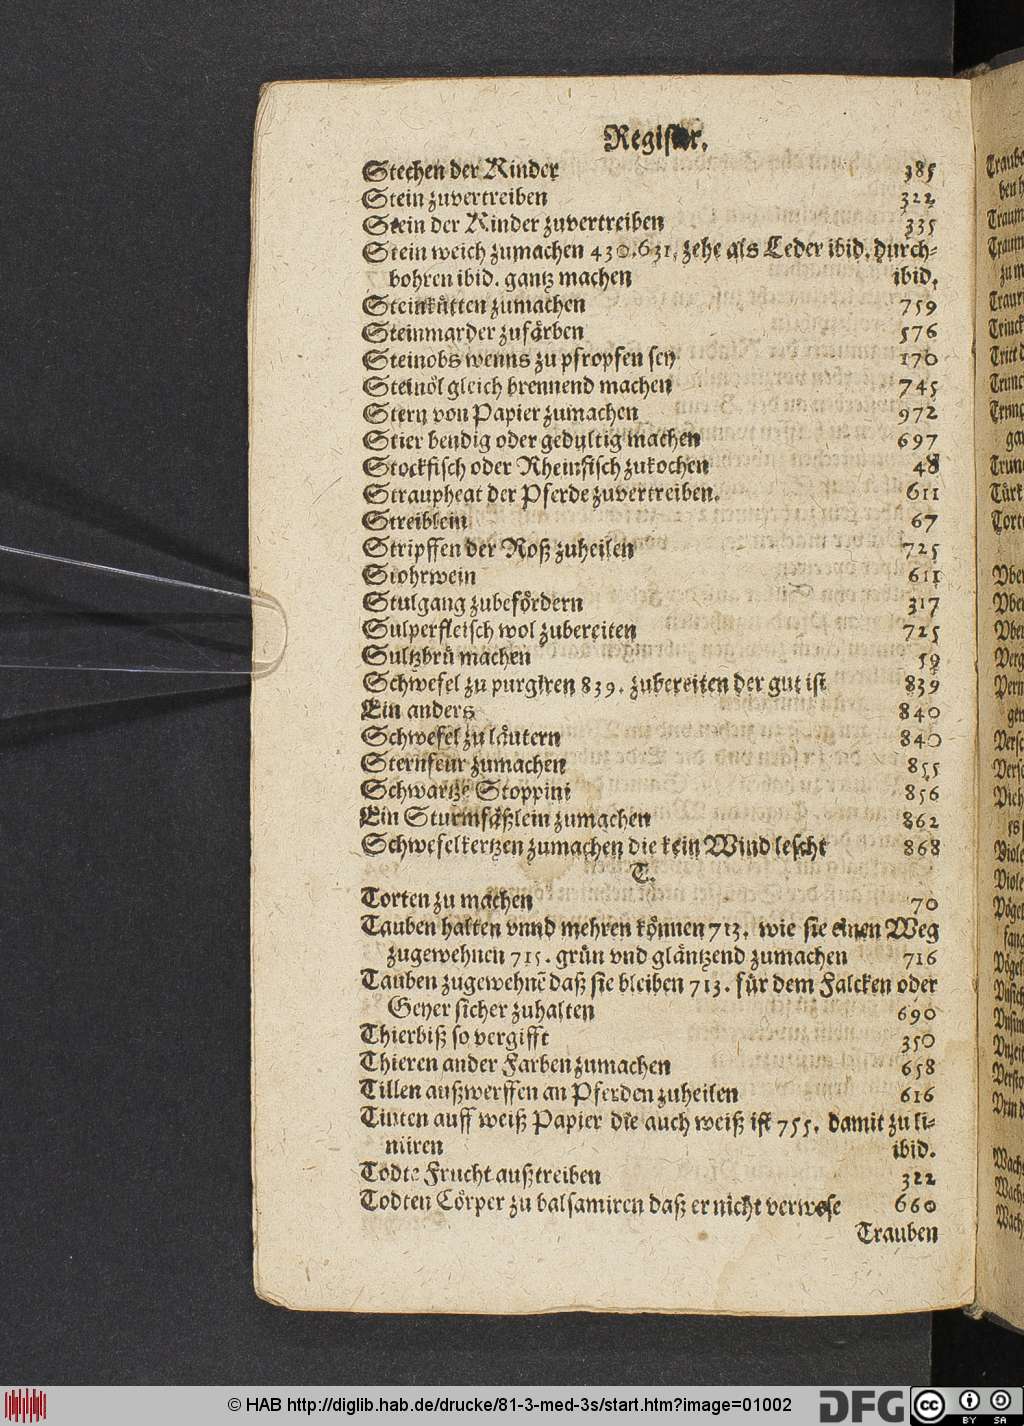 Register.
Stechen der Kinder 385
Stein zuvertreiben 322
Stein der Kinder zuvertreiben 335
Stein weich zumachen 430.631. zehe als Leder ibid. durch-
bohren ibid. gantz machen ibid.
Steinkütten zumachen 759
Steinmarder zufärben 576
Steinobs wenns zu pfropfen sey 170
Steinöl gleich brennend machen 745
Stern von Papier zumachen 972
Stier bendig oder gedultig machen 697
Stockfisch oder Rheinfisch zukochen 48
Straupheat der Pferde zuvertreiben. 611
Streiblein 67
Stripffen der Roß zuheilen 725
Stohrwein 611
Stulgang zubefördern 317
Sulperfleisch wol zubereiten 725
Sultzbrü machen 59
Schwefel zu purgiren 839. zubereiten der gut ist 839
Ein anders 840
Schwefel zu läutern 840
Sternfeur zumachen 855
Schwartze Stoppini 856
Ein Sturmfäßlein zumachen 862
Schwefelkertzen zumachen die kein Wind lescht 868
T.
Torten zu machen 70
Tauben halten vnnd mehren können 713. wie sie einen Weg
zugewehnen 715. grün vnd gläntzend zumachen 716
Tauben zugewehnē daß sie bleiben 713. für dem Falcken oder
Geyer sicher zuhalten 690
Thierbiß so vergifft 350
Thieren ander Farben zumachen 658
Tillen außwerffen an Pferden zuheilen 616
Tinten auff weiß Papier die auch weiß ist 755. damit zu li-
nüren ibid.
Todte Frucht außtreiben 322
Todten Cörper zu balsamiren daß er nicht verwese 660
Trauben
© HAB http://diglib.hab.de/drucke/81-3-med-3s/start.htm?image=01002
DFG
cc BY SA